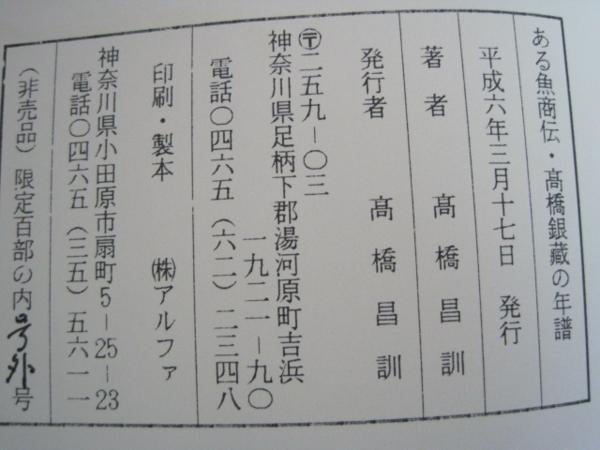 ある魚商伝・髙橋銀蔵の年譜
平成六年三月十七日　発行
著者　髙橋昌訓
発行者　髙橋昌訓
〒二五九－〇三
神奈川県足柄下郡湯河原町吉浜
一九二一－九〇
電話〇四六五（六二）二三四八
印刷・製本　㈱アルファ
神奈川県小田原市扇町5－25－23
電話〇四六五（三五）五六一一
（非売品）限定百部の内号外号